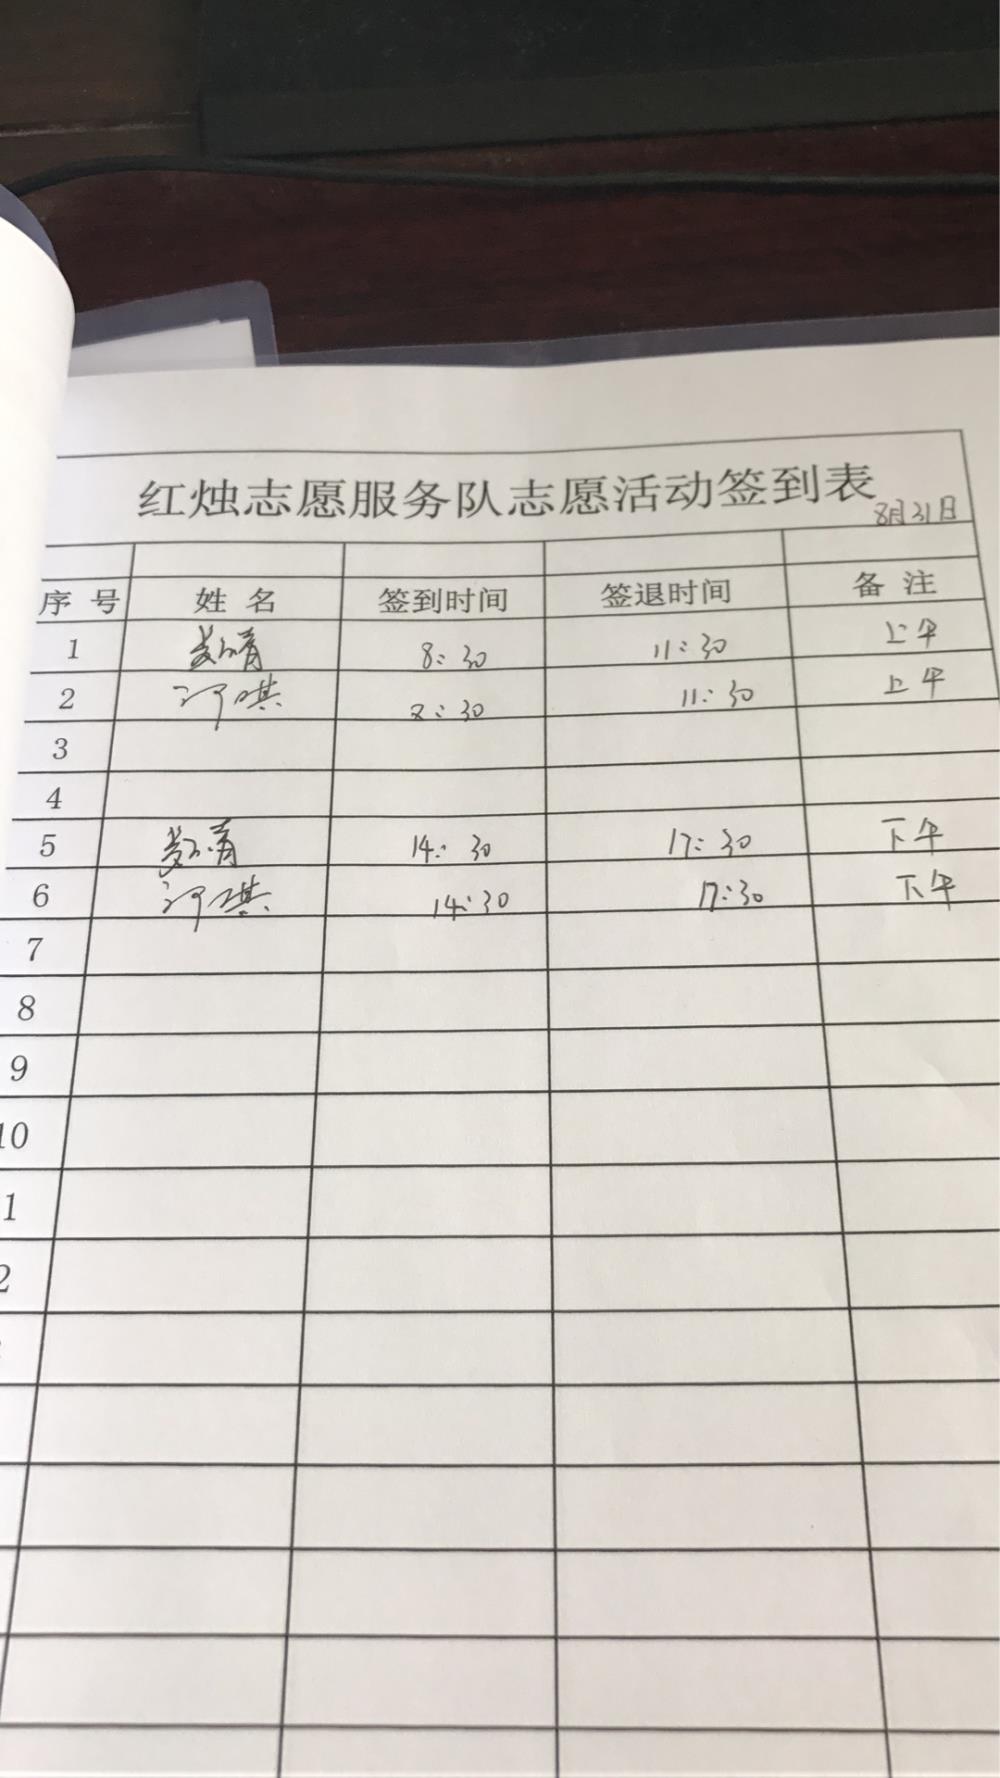 红烛志愿服务队志愿活动签到表
8月31日
序号 姓名 签到时间 签退时间 备注
1 8:30 11:30 上午
2 8:30 11:30 上午
3
4
5 14:30 17:30 下午
6 14:30 17:30 下午
7
8
9
10
1
2